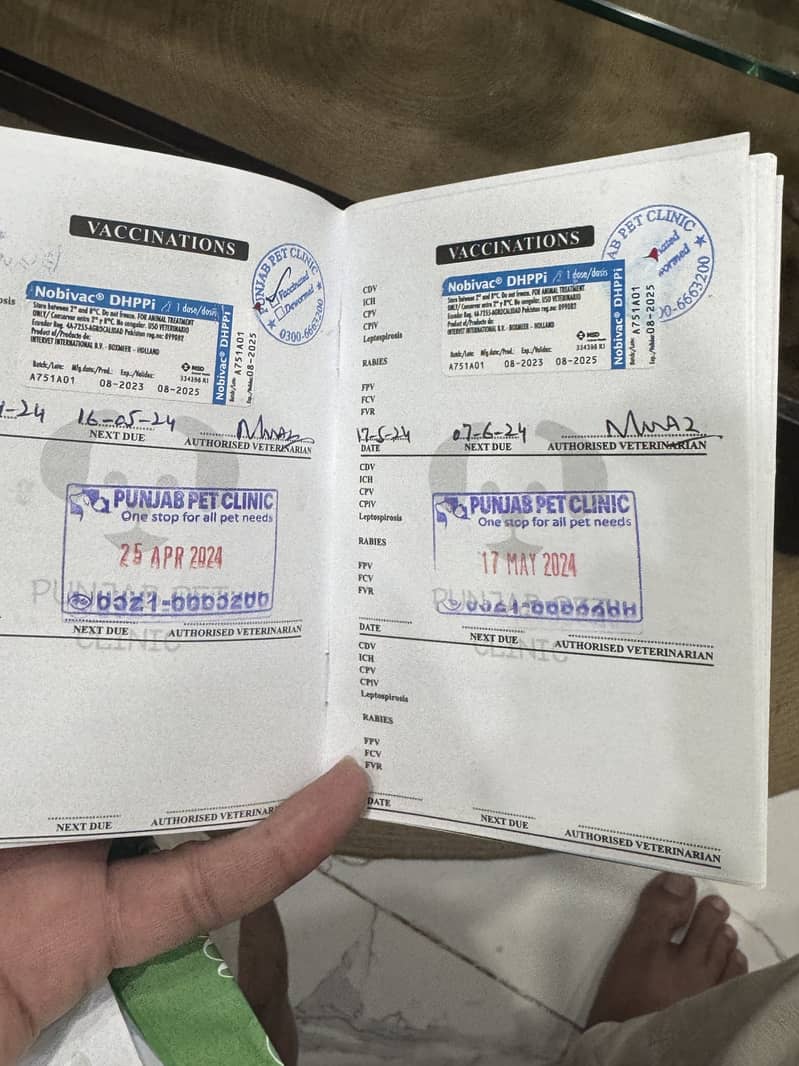 VACCINATIONS
Nobivac® DHPPi 1 dose/dosis
Store between 2° and 8°C. Do not freeze. FOR ANIMAL TREATMENT
ONLY/ Conservar entre 2° y 8°C. No congelar. USO VETERINARIO
Ecuador Reg. 4A-7255-AGROCALIDAD Pakistan reg.no: 099082
Product of/Producto de:
INTERVET INTERNATIONAL B.V. - BOXMEER - HOLLAND
Batch/Lote: Mfg.date/Prod.: Exp./Validez:
A751A01 08-2023 08-2025
334398 R1
MSD
Nobivac® DHPPi
Batch/Lote: A751A01
Exp./Validez: 08-2025
PUNJAB PET CLINIC
Vaccinated
Dewormed
0300-6663200
16-05-24
NEXT DUE AUTHORISED VETERINARIAN
PUNJAB PET CLINIC
One stop for all pet needs
25 APR 2024
NEXT DUE AUTHORISED VETERINARIAN
PUNJAB PET
CLINIC
NEXT DUE AUTHORISED
VACCINATIONS
CDV
ICH
CPV
CPiV
Leptospirosis
RABIES
FPV
FCV
FVR
Nobivac® DHPPi 1 dose/dosis
Store between 2° and 8°C. Do not freeze. FOR ANIMAL TREATMENT
ONLY/ Conservar entre 2° y 8°C. No congelar. USO VETERINARIO
Ecuador Reg. 4A-7255-AGROCALIDAD Pakistan reg.no: 099082
Product of/Producto de:
INTERVET INTERNATIONAL B.V. - BOXMEER - HOLLAND
Batch/Lote: Mfg.date/Prod.: Exp./Validez:
A751A01 08-2023 08-2025
334398 R1
MSD
Nobivac® DHPPi
Batch/Lote: A751A01
Exp./Validez: 08-2025
AB PET CLINIC
nated
wormed
0-6663200
17-5-24 07-6-24
DATE NEXT DUE AUTHORISED VETERINARIAN
CDV
ICH
CPV
CPiV
Leptospirosis
RABIES
FPV
FCV
FVR
PUNJAB PET CLINIC
One stop for all pet needs
17 MAY 2024
DATE NEXT DUE AUTHORISED VETERINARIAN
CLINIC
CDV
ICH
CPV
CPiV
Leptospirosis
RABIES
FPV
FCV
FVR
DATE NEXT DUE AUTHORISED VETERINARIAN